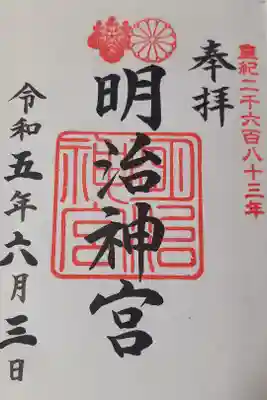 皇紀二千六百八十三年
奉拝
明治神宮
明治神宮
令和五年六月三日